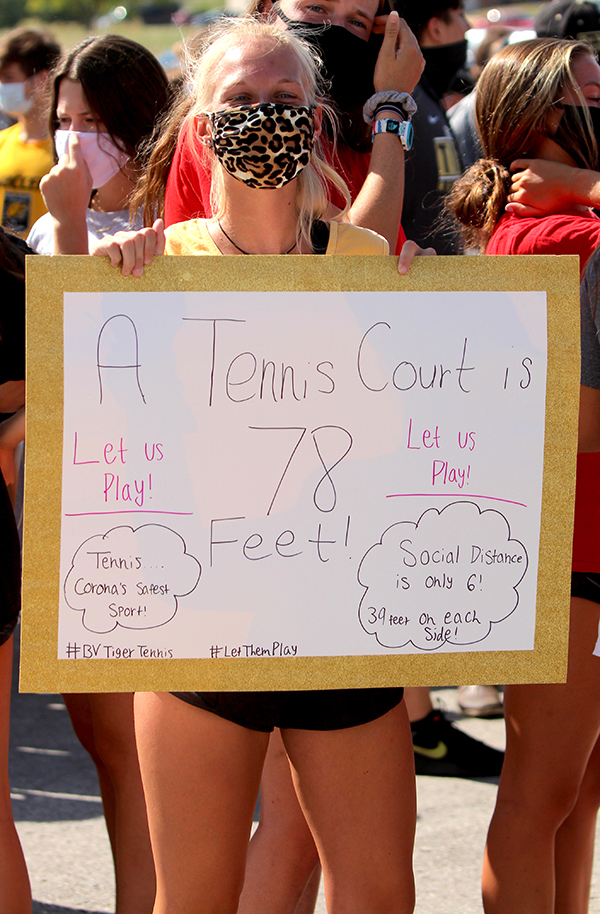 A Tennis Court is
78
Feet!
Let us
Play!
Let us
Play!
Tennis....
Corona's Safest
Sport!
Social Distance
is only 6!
39 feet on each
Side!
#BVTigerTennis #LetThemPlay